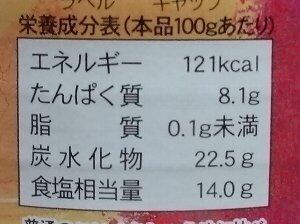 ラベル キャップ
栄養成分表(本品100gあたり)
エネルギー 121kcal
たんぱく質 8.1g
脂質 0.1g未満
炭水化物 22.5g
食塩相当量 14.0g